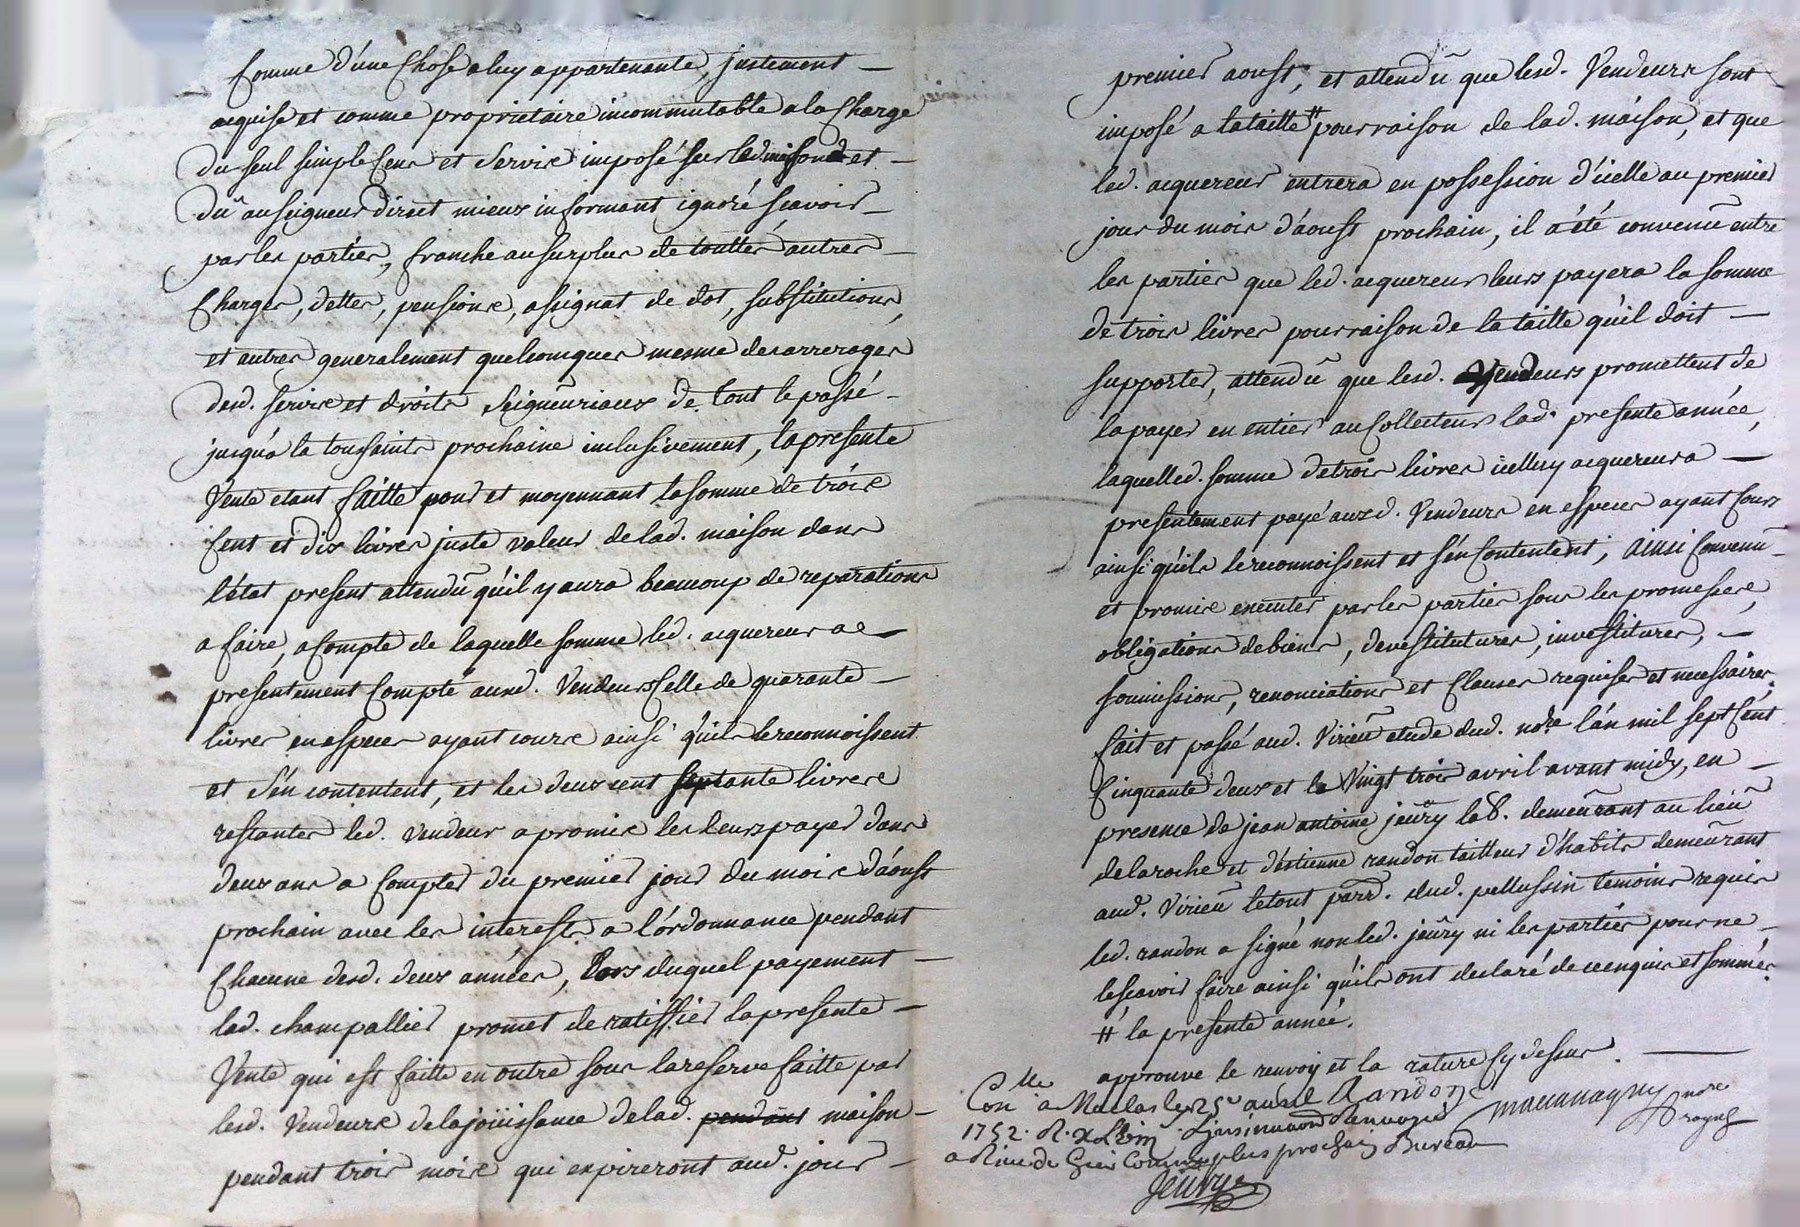 Comme d'une Chose a luy appartenante, justement
acquise et comme proprietaire incommutable a la Charge
du seul simple Cens et Servis imposé sur lad. et
Dû au seigneur Direct mieux informant ignoré scavoir
par les parties, franche au surplus de touttes autres
Charges, dettes, pensions, assignat de dot, substitutions,
et autres generalement quelconques mesme des arrerages
desd. servis et droits Seigneuriaux de tout le passé
jusqu'a la toussaints prochaine inclusivement, la presente
Vente etant faitte pour et moyennant la somme de trois
Cent et dix livres juste valeur de lad. maison dans
l'état present attendû qu'il y aura beaucoup de reparations
a faire, a Compte de laquelle somme led. acquereur a
presentement Compté ausd. Vendeurs Celle de quarante
livres en especes ayant cours ainsi qu'ils le reconnoissent
et s'en contentent, et les deux cent septante livres
restantes led. vendeur a promis les leurs payer dans
deux ans a Compter du premier jour du mois d'áoust
prochain avec les interests a l'órdonnance pendant
Chacune desd. deux années, Lors duquel payement
lad. champallier promet de ratiffier la presente
Vente qui est faitte en outre sous la reserve faitte par
lesd. Vendeurs de la joüissance de lad. pendant maison
pendant trois mois qui expireront aud. jour
premier aoust, et attendû que lesd. Vendeurs sont
imposé a la taille # pour raison de lad. maison, et que
led. acquereur entrera en possession d'icelle au premier
jour du mois d'áoust prochain, il a été convenû entre
les parties que led. acquereur leurs payera la somme
de trois livres pour raison de la taille qu'il doit
supporter, attendû que lesd. Vendeurs promettent de
la payer en entier au Collecteur lad. presente année,
laquelled. somme de trois livres icelluy acquereur a
presentement payé auxd. Vendeurs en especes ayant Cours
ainsi qu'ils le reconnoissent et s'en Contentent, ainsi Convenû
et promis executer par les parties sous les promesses,
obligations de biens, devestitutures, investitures,
soumissions, renonciations et Clauses requises et necessaires,
fait et passé aud. Virieû etude dud. nore. l'an mil sept Cent
Cinquante deux et le Vingt trois avril avant midy, en
presence de jean antoine jeûry lab. demeûrant au lieû
de la roche et d'étienne randon tailleur d'habits demeûrant
aud. Virieû le tout parr. dud. pellussin temoins requis
led. randon a signé non led. jeûry ni les parties pour ne
le scavoir faire ainsi qu'ils ont declaré de ce enquis et sommés.
# la presente année.
approuve le renvoy et la rature cy dessus.
Conlle a Maclas le 25e auril Randon
1752. R. Renvoyé
a Rive de Gier Comme plus prochain Bureau
Jeurye